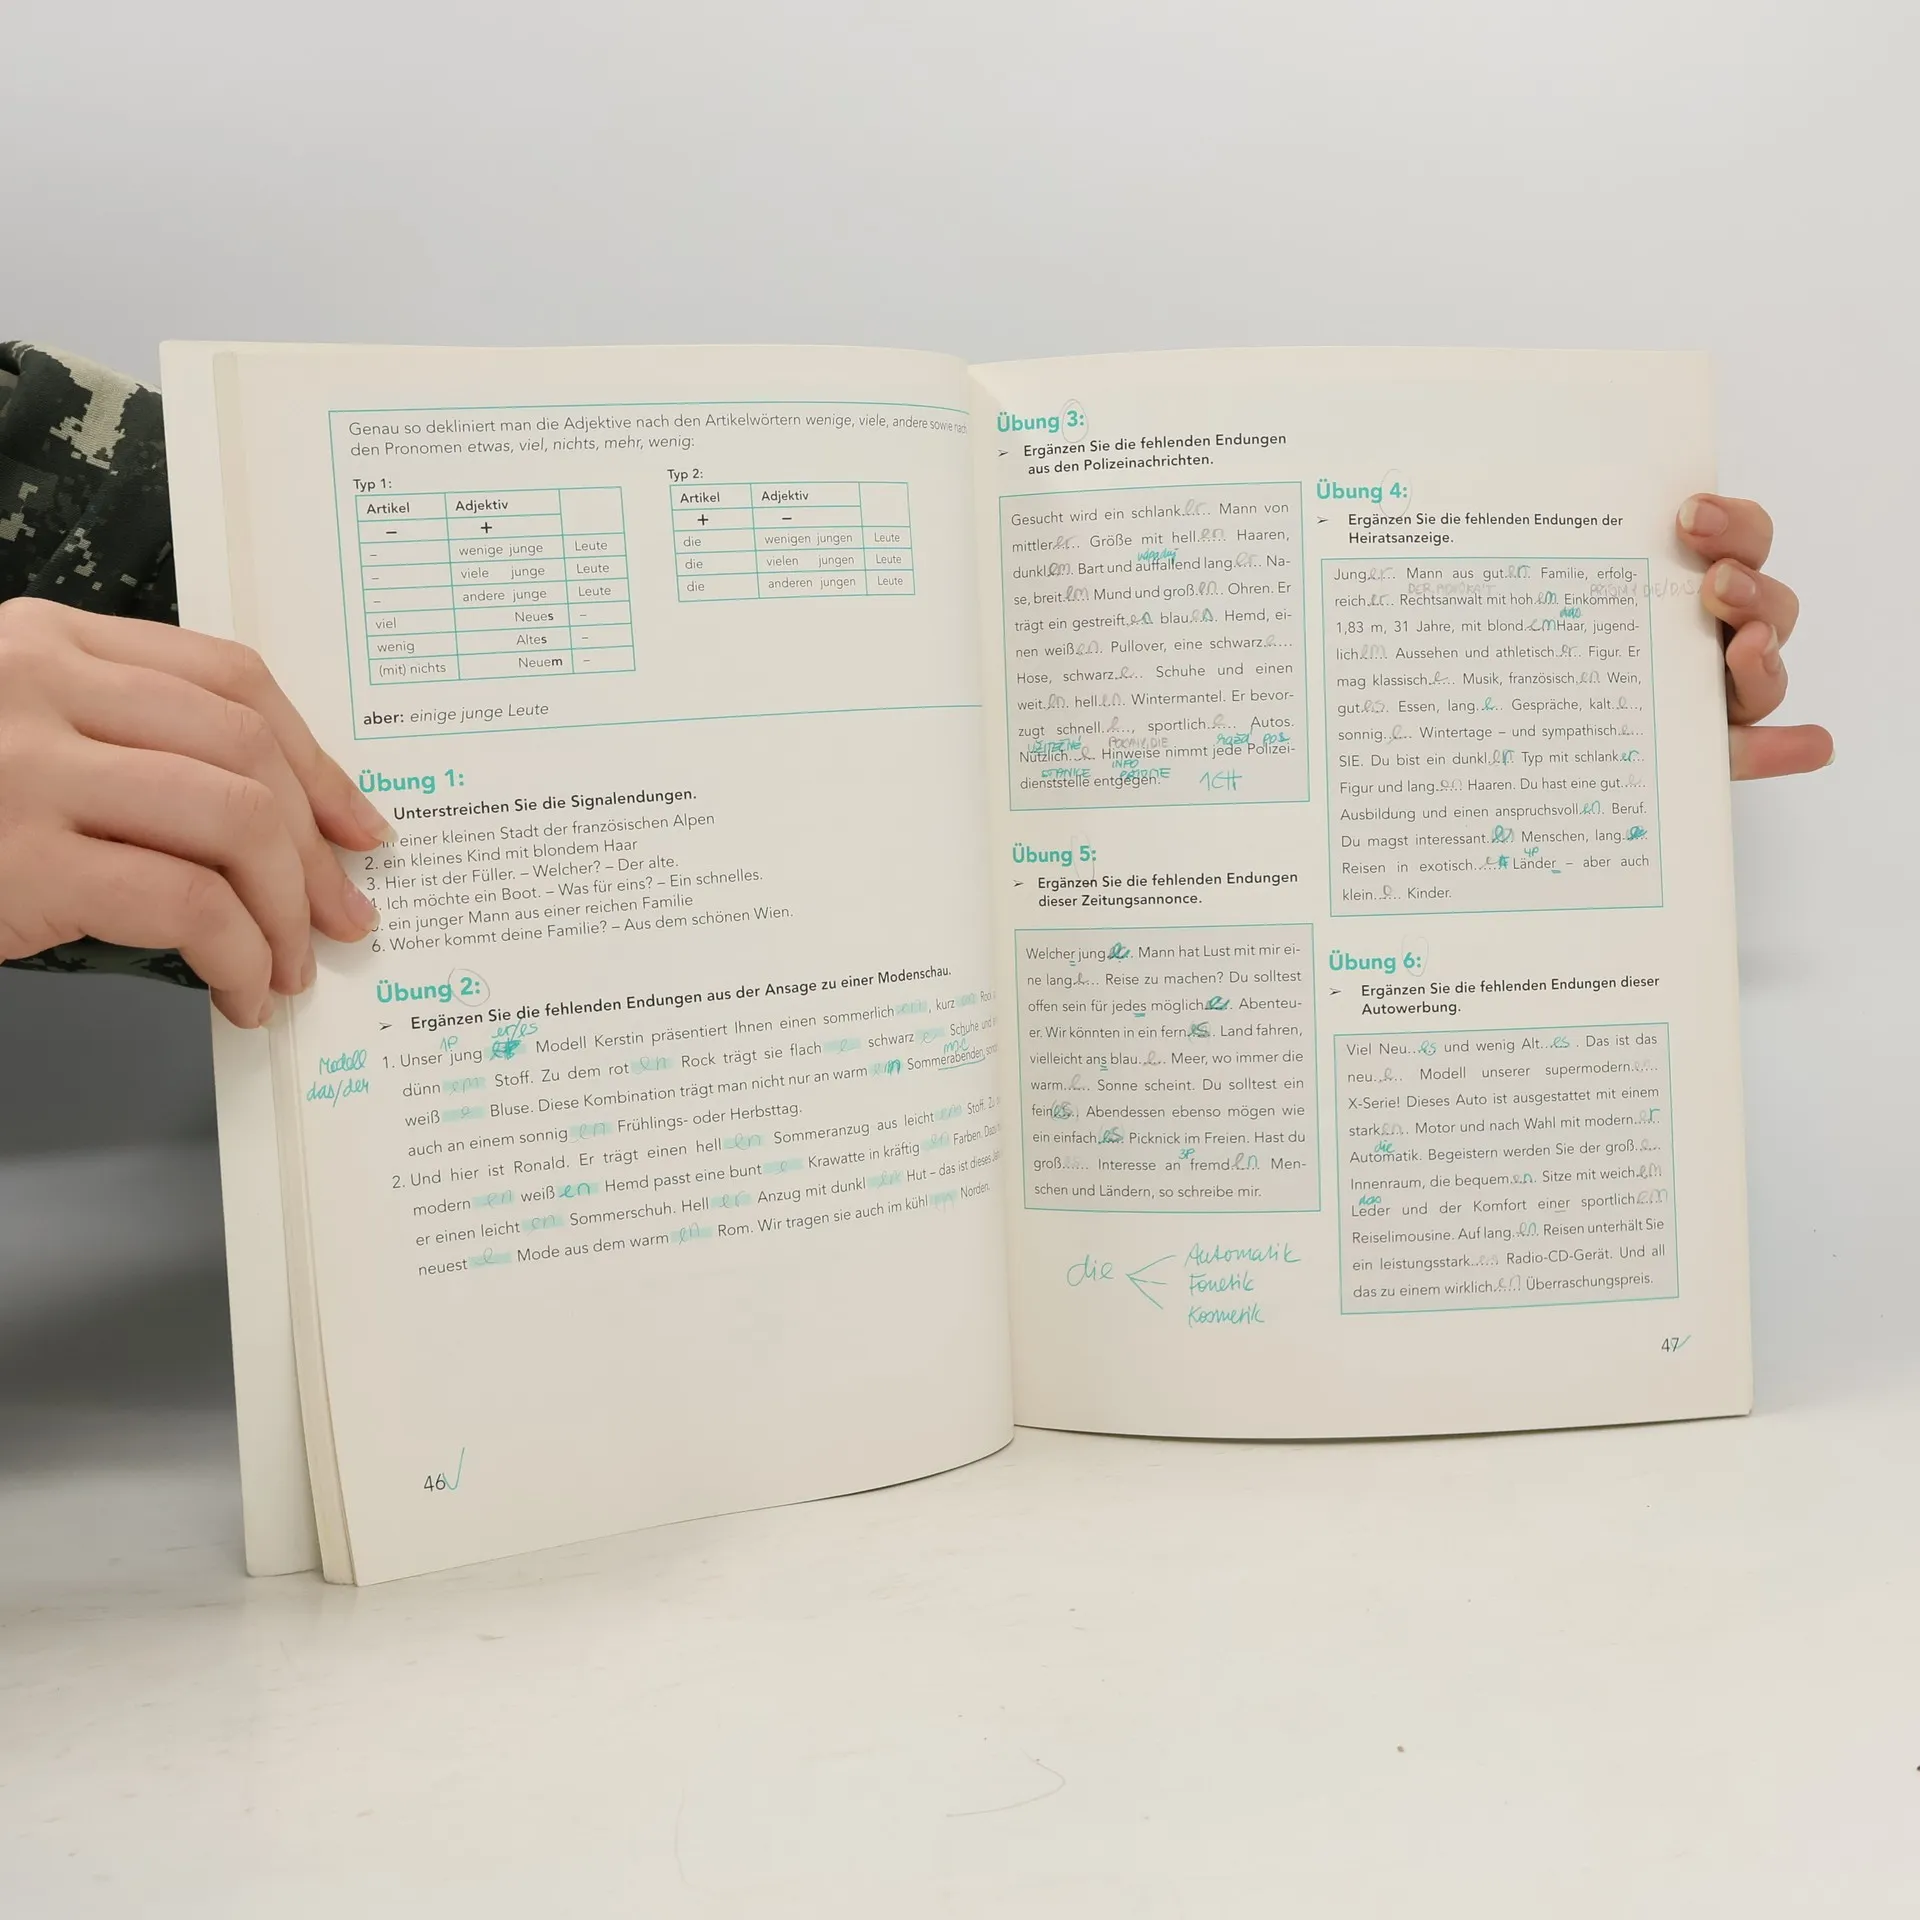 Genau so dekliniert man die Adjektive nach den Artikelwörtern wenige, viele, andere sowie nach
den Pronomen etwas, viel, nichts, mehr, wenig:
Typ 1:
Artikel Adjektiv
– +
– wenige junge Leute
– viele junge Leute
– andere junge Leute
viel Neues –
wenig Altes –
(mit) nichts Neuem –
Typ 2:
Artikel Adjektiv
+ –
die wenigen jungen Leute
die vielen jungen Leute
die anderen jungen Leute
aber: einige junge Leute
Übung 1:
Unterstreichen Sie die Signalendungen.
einer kleinen Stadt der französischen Alpen
2. ein kleines Kind mit blondem Haar
3. Hier ist der Füller. – Welcher? – Der alte.
4. Ich möchte ein Boot. – Was für eins? – Ein schnelles.
ein junger Mann aus einer reichen Familie
6. Woher kommt deine Familie? – Aus dem schönen Wien.
Übung 2:
➢ Ergänzen Sie die fehlenden Endungen aus der Ansage zu einer Modenschau.
1P er/es
Modell
das/der
1. Unser jung Modell Kerstin präsentiert Ihnen einen sommerlich en, kurz en Rock
dünn em Stoff. Zu dem rot en Rock trägt sie flach e schwarz e Schuhe und
weiß e Bluse. Diese Kombination trägt man nicht nur an warm en Sommerabenden,
auch an einem sonnig en Frühlings- oder Herbsttag.
2. Und hier ist Ronald. Er trägt einen hell en Sommeranzug aus leicht em Stoff.
modern en weiß en Hemd passt eine bunt e Krawatte in kräftig en Farben.
er einen leicht en Sommerschuh. Hell er Anzug mit dunkl Hut – das ist dieses
neuest e Mode aus dem warm en Rom. Wir tragen sie auch im kühl Norden.
46
Übung 3:
➢ Ergänzen Sie die fehlenden Endungen
aus den Polizeinachrichten.
Gesucht wird ein schlank er Mann von
mittler er Größe mit hell en Haaren,
dunkl em Bart und auffallend lang er Na-
se, breit em Mund und groß en Ohren. Er
trägt ein gestreift es blau es Hemd, ei-
nen weiß en Pullover, eine schwarz e
Hose, schwarz e Schuhe und einen
weit en hell en Wintermantel. Er bevor-
zugt schnell e, sportlich e Autos.
Nützlich e Hinweise nimmt jede Polizei-
dienststelle entgegen.
Übung 5:
➢ Ergänzen Sie die fehlenden Endungen
dieser Zeitungsannonce.
Welcher jung e Mann hat Lust mit mir ei-
ne lang e Reise zu machen? Du solltest
offen sein für jedes möglich e Abenteu-
er. Wir könnten in ein fern es Land fahren,
vielleicht ans blau e Meer, wo immer die
warm e Sonne scheint. Du solltest ein
fein es Abendessen ebenso mögen wie
ein einfach es Picknick im Freien. Hast du
groß Interesse an fremd en Men-
3P
schen und Ländern, so schreibe mir.
die Automatik
Fonetik
Kosmetik
Übung 4:
➢ Ergänzen Sie die fehlenden Endungen der
Heiratsanzeige.
Jung er Mann aus gut er Familie, erfolg-
reich er Rechtsanwalt mit hoh em Einkommen,
das
1,83 m, 31 Jahre, mit blond em Haar, jugend-
lich em Aussehen und athletisch er Figur. Er
mag klassisch e Musik, französisch en Wein,
gut es Essen, lang e Gespräche, kalt e,
sonnig e Wintertage – und sympathisch e
SIE. Du bist ein dunkl er Typ mit schlank er
Figur und lang en Haaren. Du hast eine gut e
Ausbildung und einen anspruchsvoll en Beruf.
Du magst interessant Menschen, lang e
4P
Reisen in exotisch e Länder – aber auch
klein e Kinder.
Übung 6:
➢ Ergänzen Sie die fehlenden Endungen dieser
Autowerbung.
Viel Neu es und wenig Alt es . Das ist das
neu e Modell unserer supermodern
X-Serie! Dieses Auto ist ausgestattet mit einem
stark en Motor und nach Wahl mit modern er
die
Automatik. Begeistern werden Sie der groß e
Innenraum, die bequem en Sitze mit weich em
das
Leder und der Komfort einer sportlich
Reiselimousine. Auf lang en Reisen unterhält Sie
ein leistungsstark es Radio-CD-Gerät. Und all
das zu einem wirklich en Überraschungspreis.
47